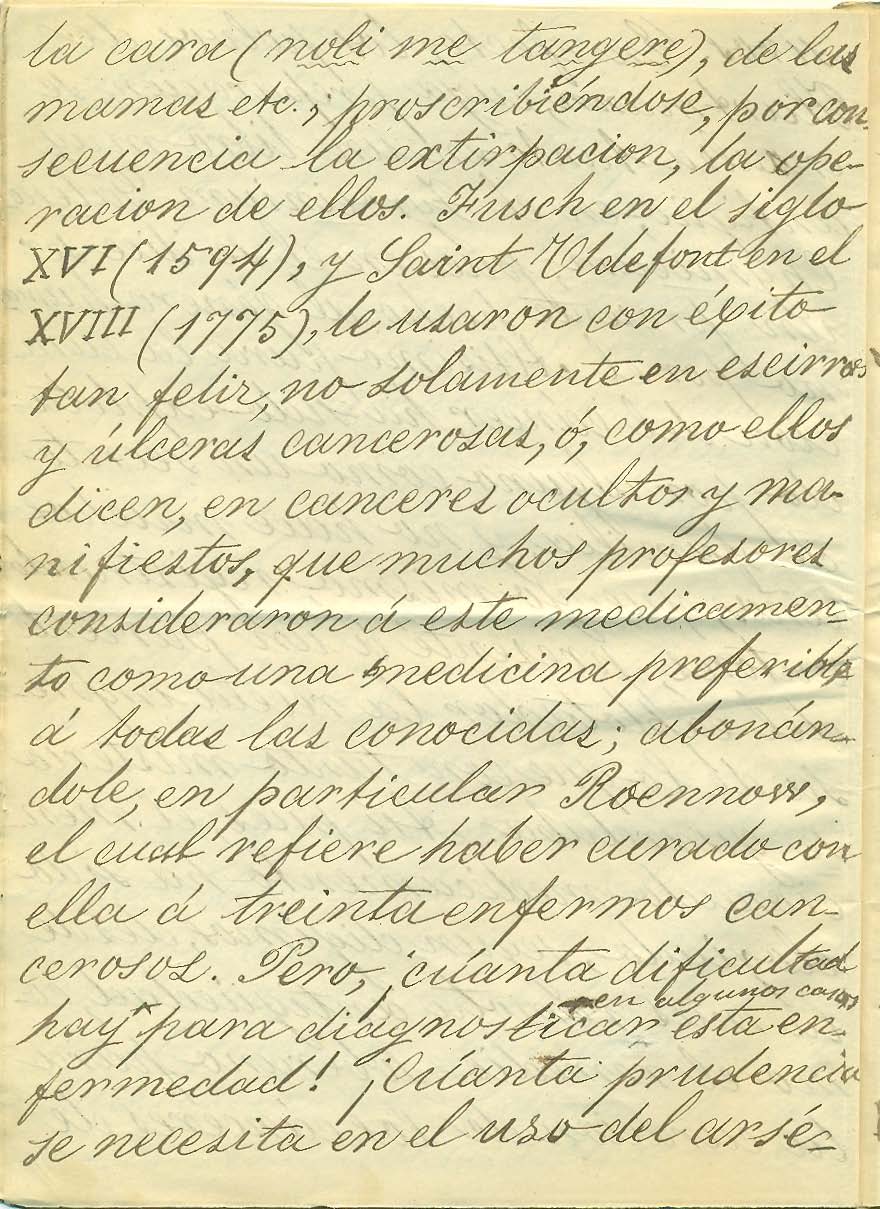 la cara (noli me tangere), de las
mamas etc.; proscribiéndose, por con-
secuencia la extirpacion, la ope-
racion de ellos. Fusch en el siglo
XVI (1594), y Saint Yldefont en el
XVIII (1775), le usaron con éxito
tan feliz, no solamente en escirros
y úlceras cancerosas, ó, como ellos
dicen, en canceres ocultos y ma-
nifiestos, que muchos profesores
consideraron á este medicamen-
to como una medicina preferible
á todas las conocidas; abonán-
dole, en particular Roennow,
el cual refiere haber curado con
ella á treinta enfermos can-
cerosos. Pero, ¡cúanta dificultad
en algunos casos
hay para diagnosticar esta en-
fermedad! ¡Cúanta prudencia
se necesita en el uso del arsé-